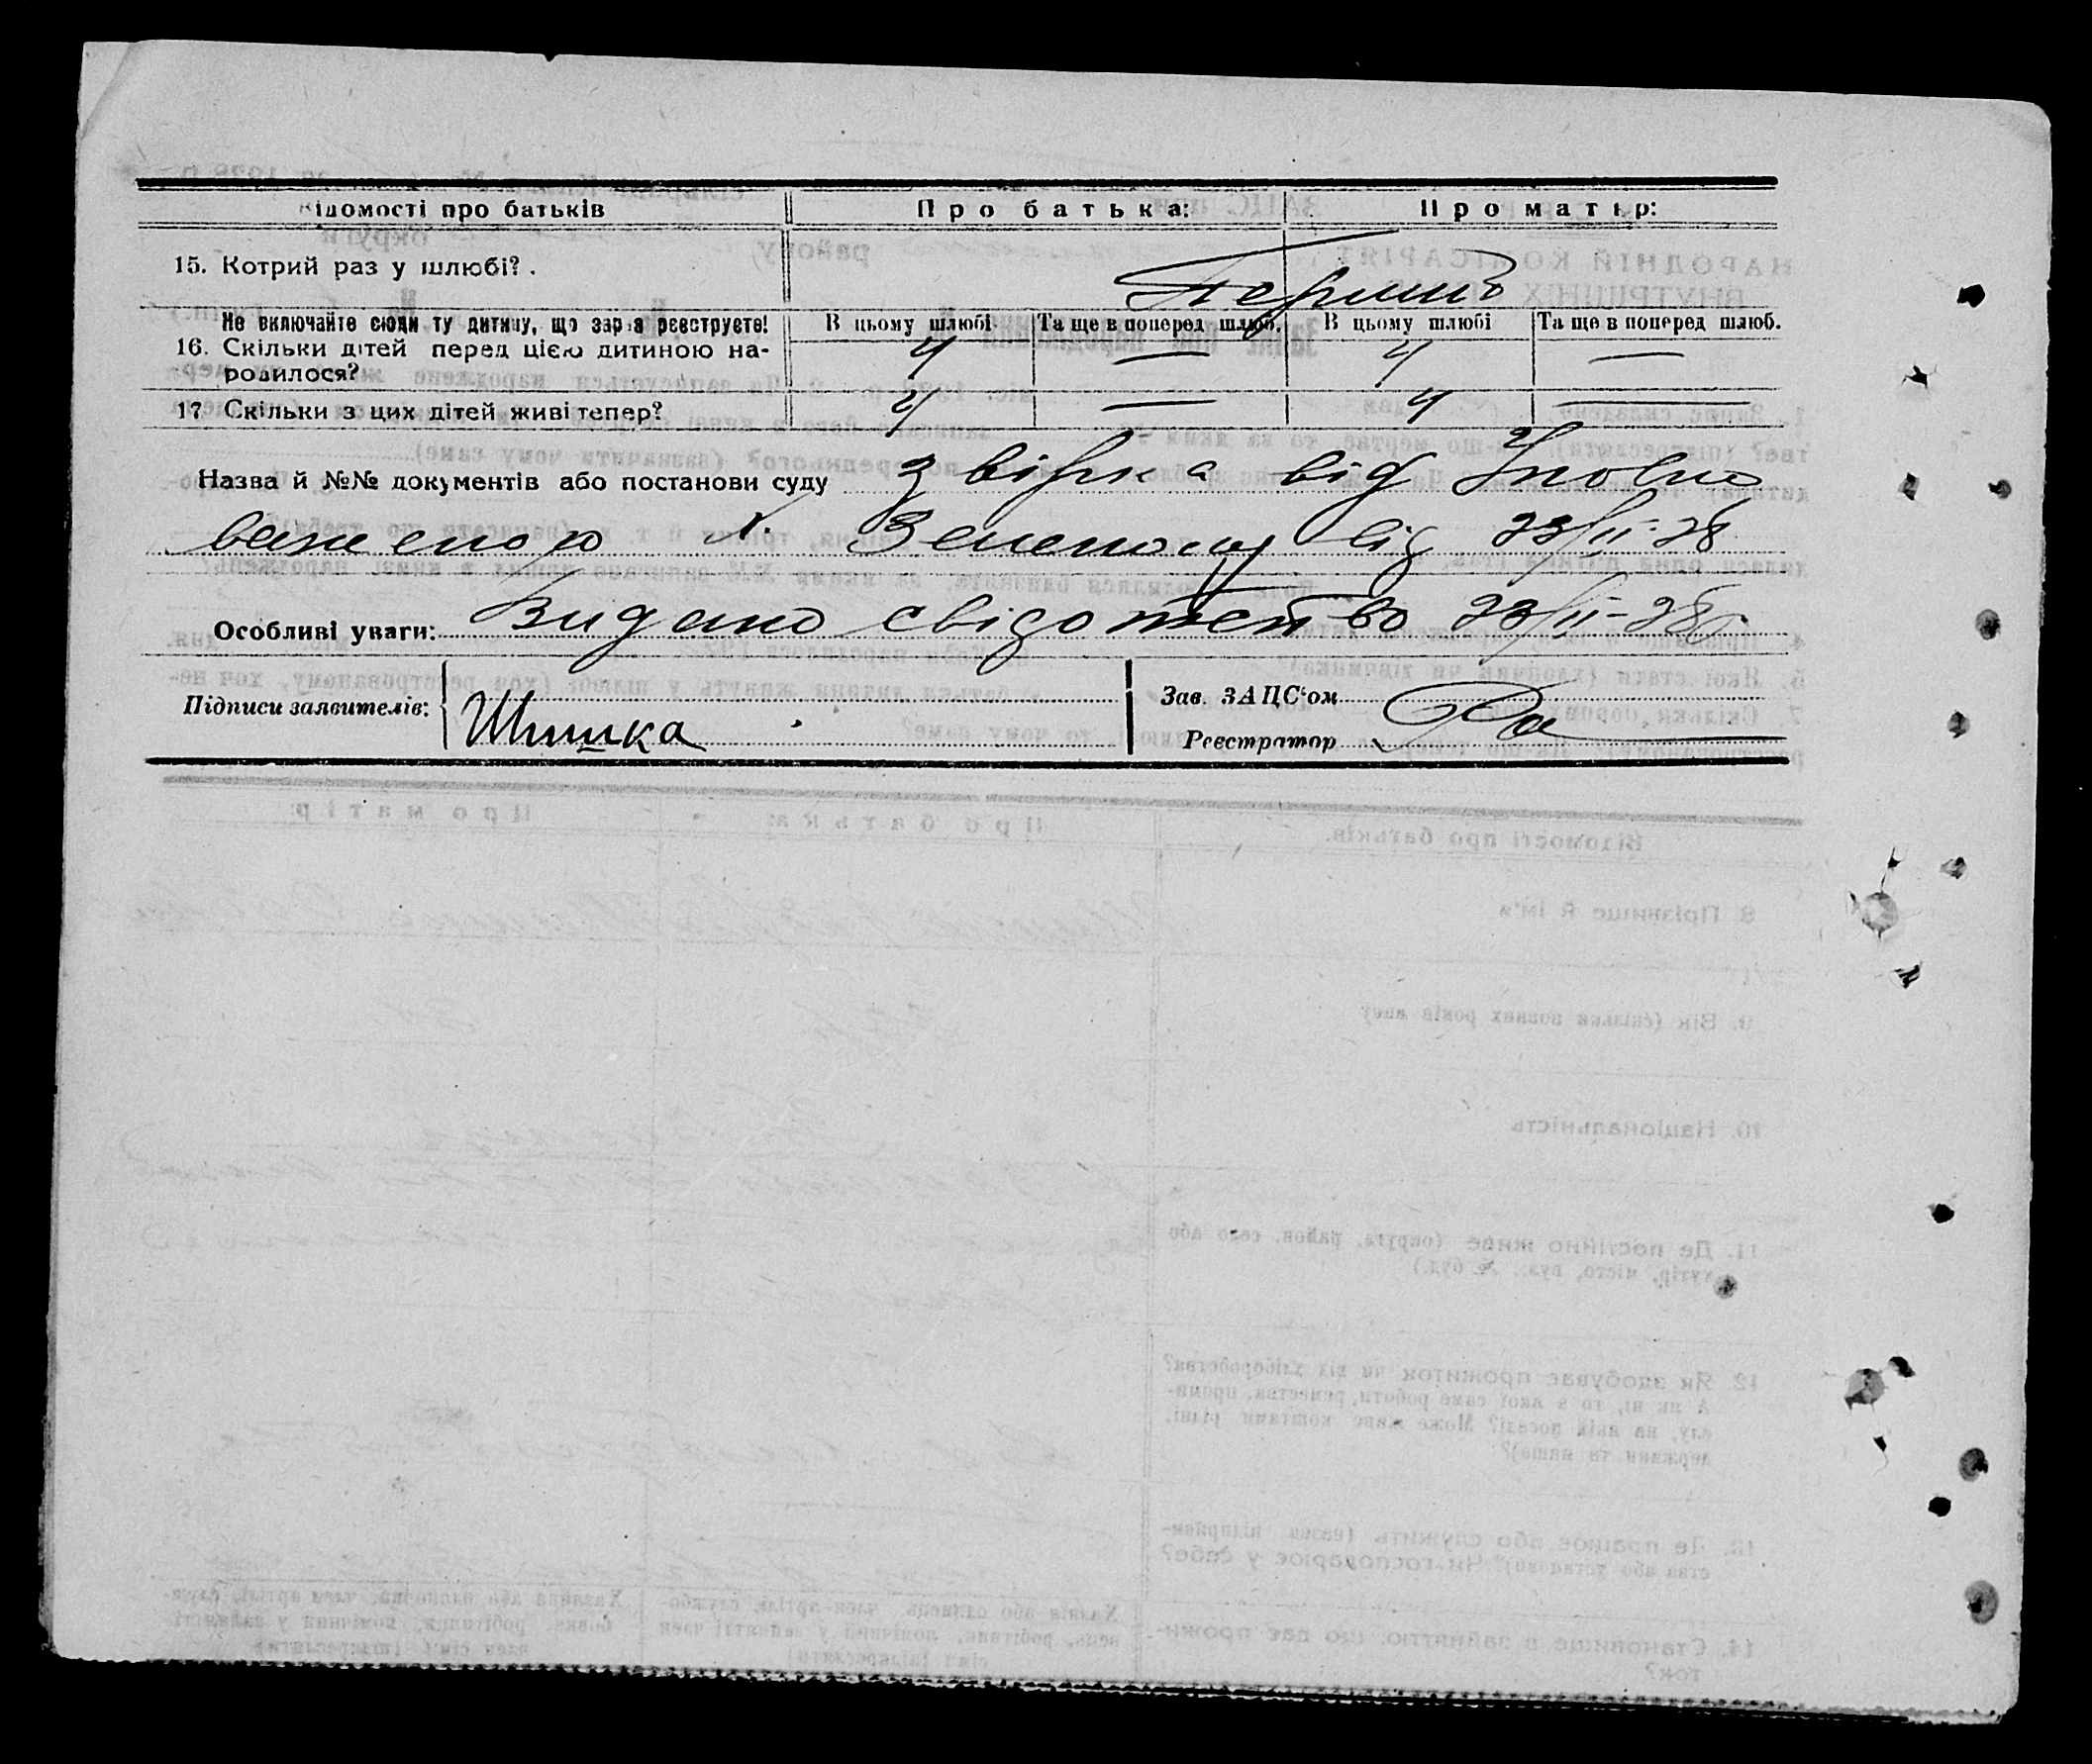 Відомості про батьків Про батька: Про матір:
15. Котрий раз у шлюбі? Перший
Не включайте сюди ту дитину, що зараз реєструєте! В цьому шлюбі Та ще в поперед шлюб. В цьому шлюбі Та ще в поперед шлюб.
16. Скільки дітей перед цією дитиною на- 4 — 4 —
родилося?
17. Скільки з цих дітей живі тепер? 4 — 4 —
Назва й №№ документів або постанови суду звірка від Уповно
важеного х. від 23/II-28
Особливі уваги: Видано свідотство 23/II-28р.
Підписи заявителів: Шишка Зав. ЗАЦС'ом
Реєстратор